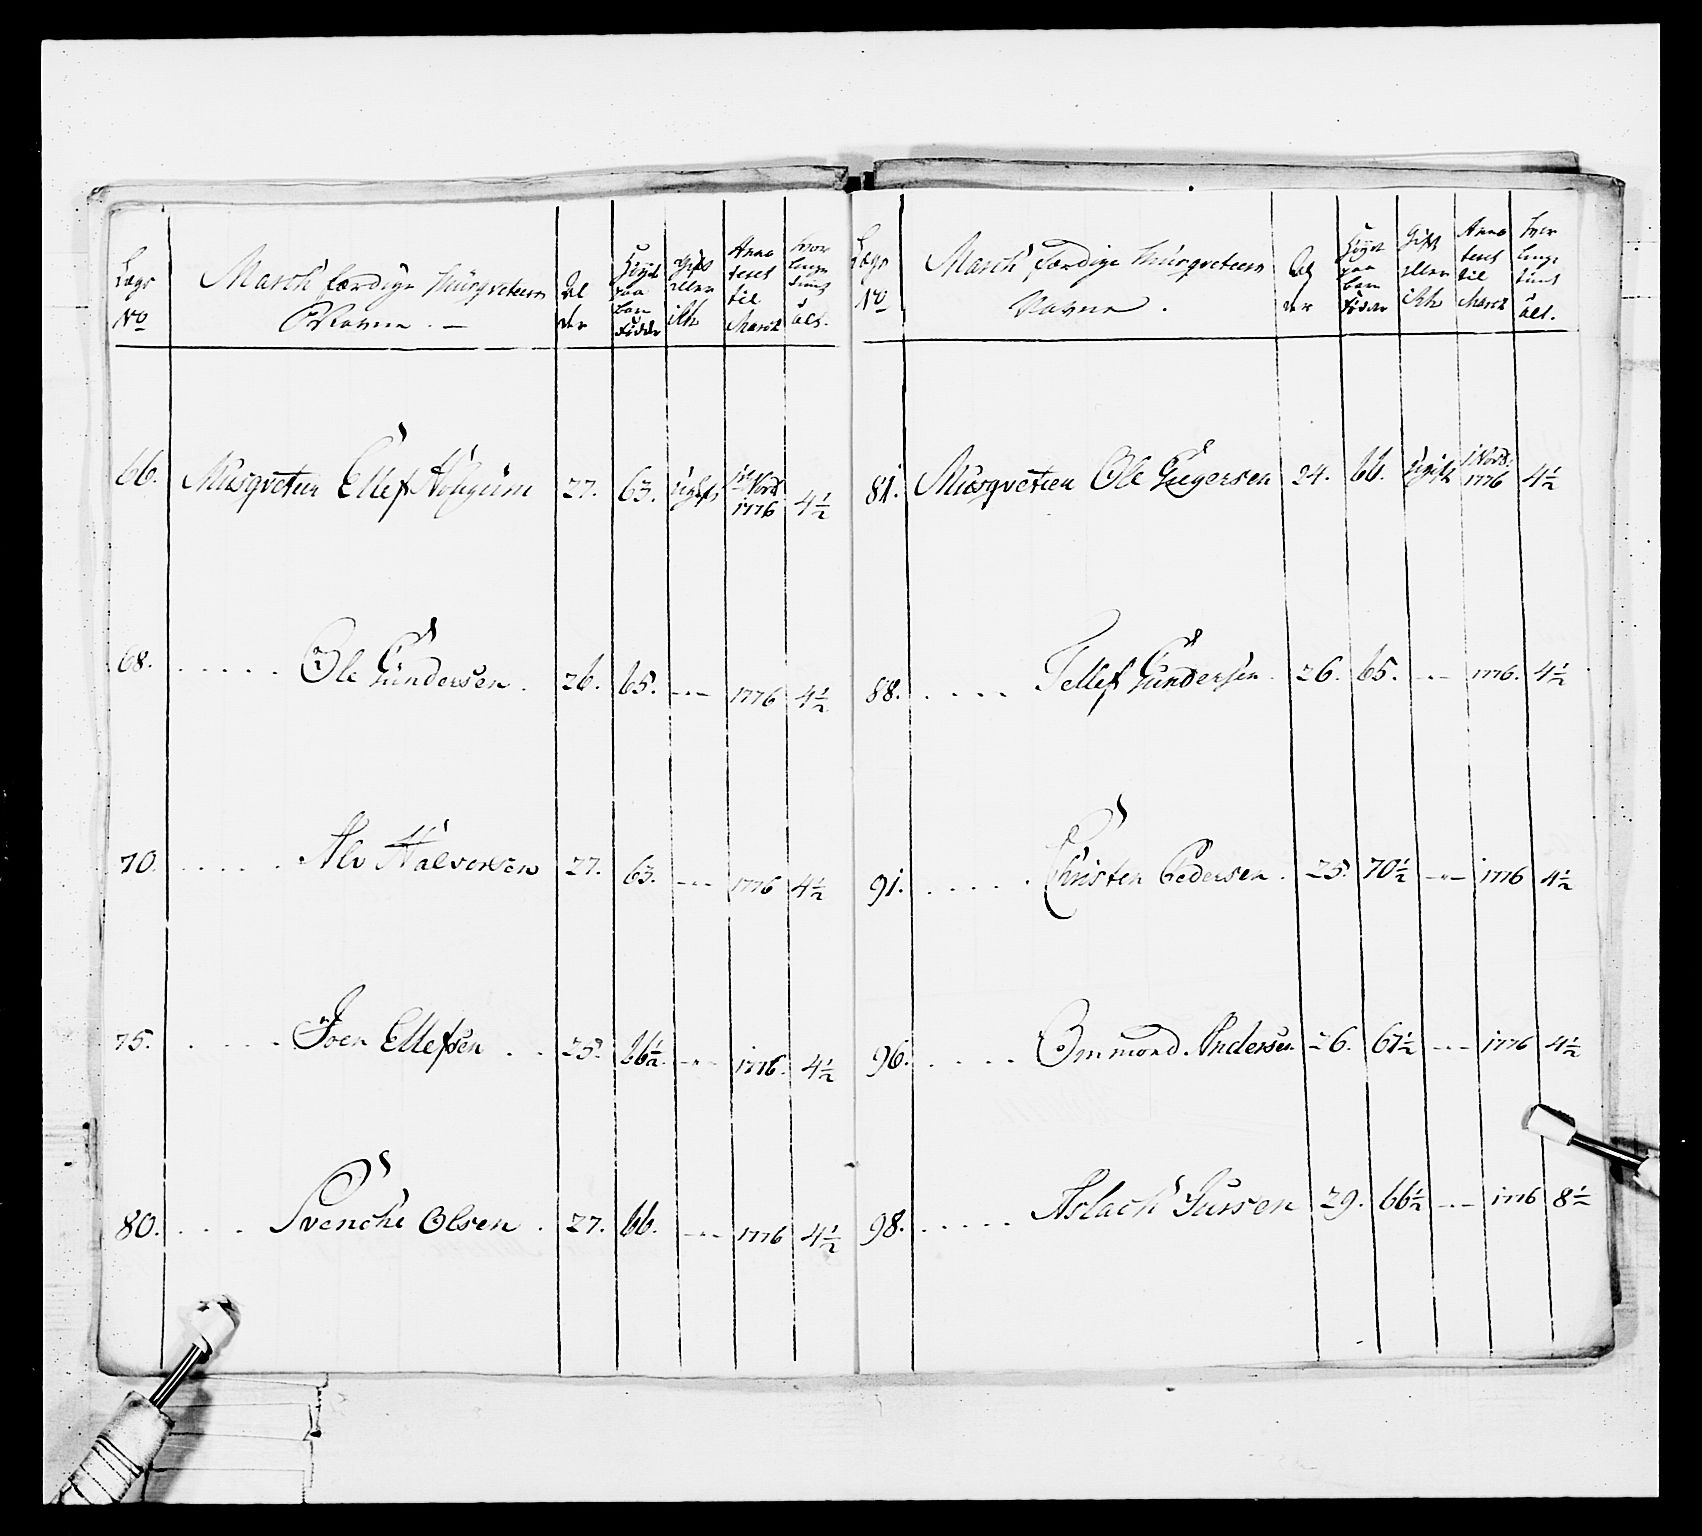 Lægs No
March færdige Musqveteers Navne. —
Al der
Høyde paa bare Fødder
Gift eller ikke
Anno tent til March
hvor lenge tient alt.
66. Musqveteer Ellef Houjum 27. 63. Ugift 1te Novb. 1776 4½
68. ..... Ole Gundersen. 26. 65. -"- 1776 4½
70. ..... Alv Halversen 27. 63. -"- 1776 4½
75. ..... Joen Ellefsen .. 25. 66½. -"- 1776. 4½
80. .... Svenche Olsen . 27. 66. -"- 1776 4½
Lægs No
March færdige Musqveteers Navne .
Al der
Høyde paa bare Føder
Gift eller ikke
Anno tent til March
hvor lenge tient alt.
81. Musqveteer Ole Gregersen 24. 66. Ugift 1 Novb. 1776 4½
88. .... Tellef Gundersen. 26. 65. -"- 1776. 4½
91. ..... Christen Pedersen. 25. 70½ -"- 1776 4½
96. .... Ommond Andersen 26. 67½ -"- 1776 4½
98. ..... Aslach Sursen 29. 66½ -"- 1776 8½